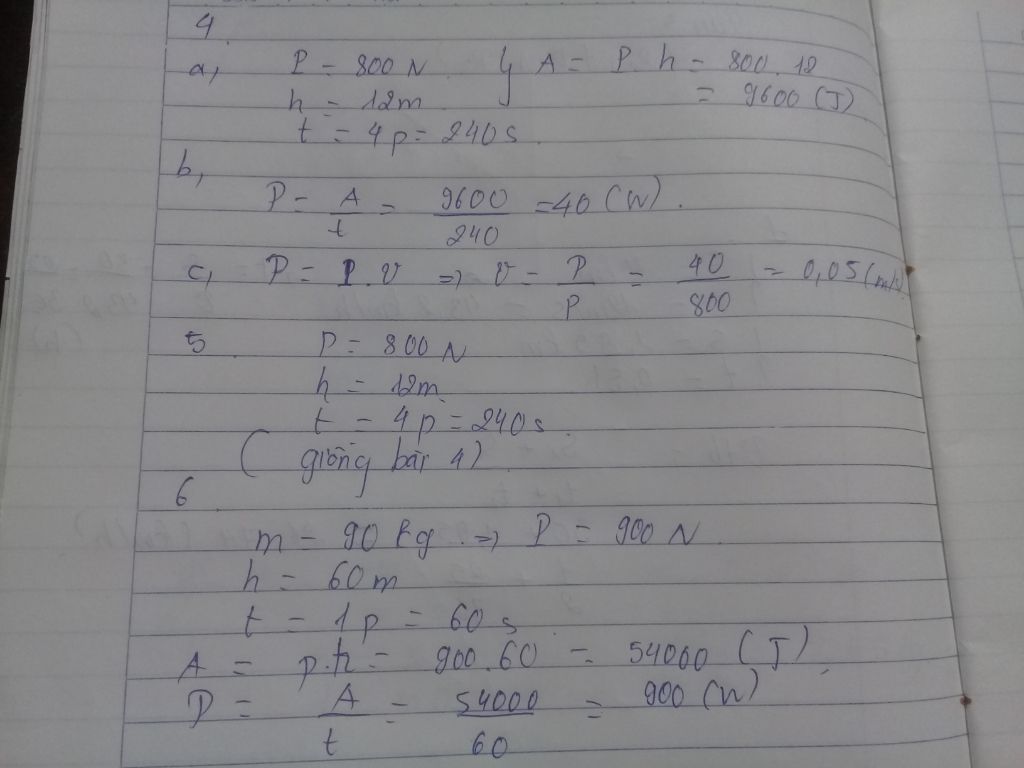 4
a, P = 800 N. A = P. h = 800. 12
h = 12m = 9600 (J)
t = 4p = 240s
b,
P = A/t = 9600/240 = 40 (W).
c, P = P.v => v = P/P = 40/800 = 0,05 (m/s)
5 P = 800 N
h = 12m
t = 4p = 240s.
( giống bài 4)
6
m = 90 kg => P = 900 N
h = 60m
t = 1p = 60s
A = p.h = 900.60 = 54000 (J)
P = A/t = 54000/60 = 900 (W)